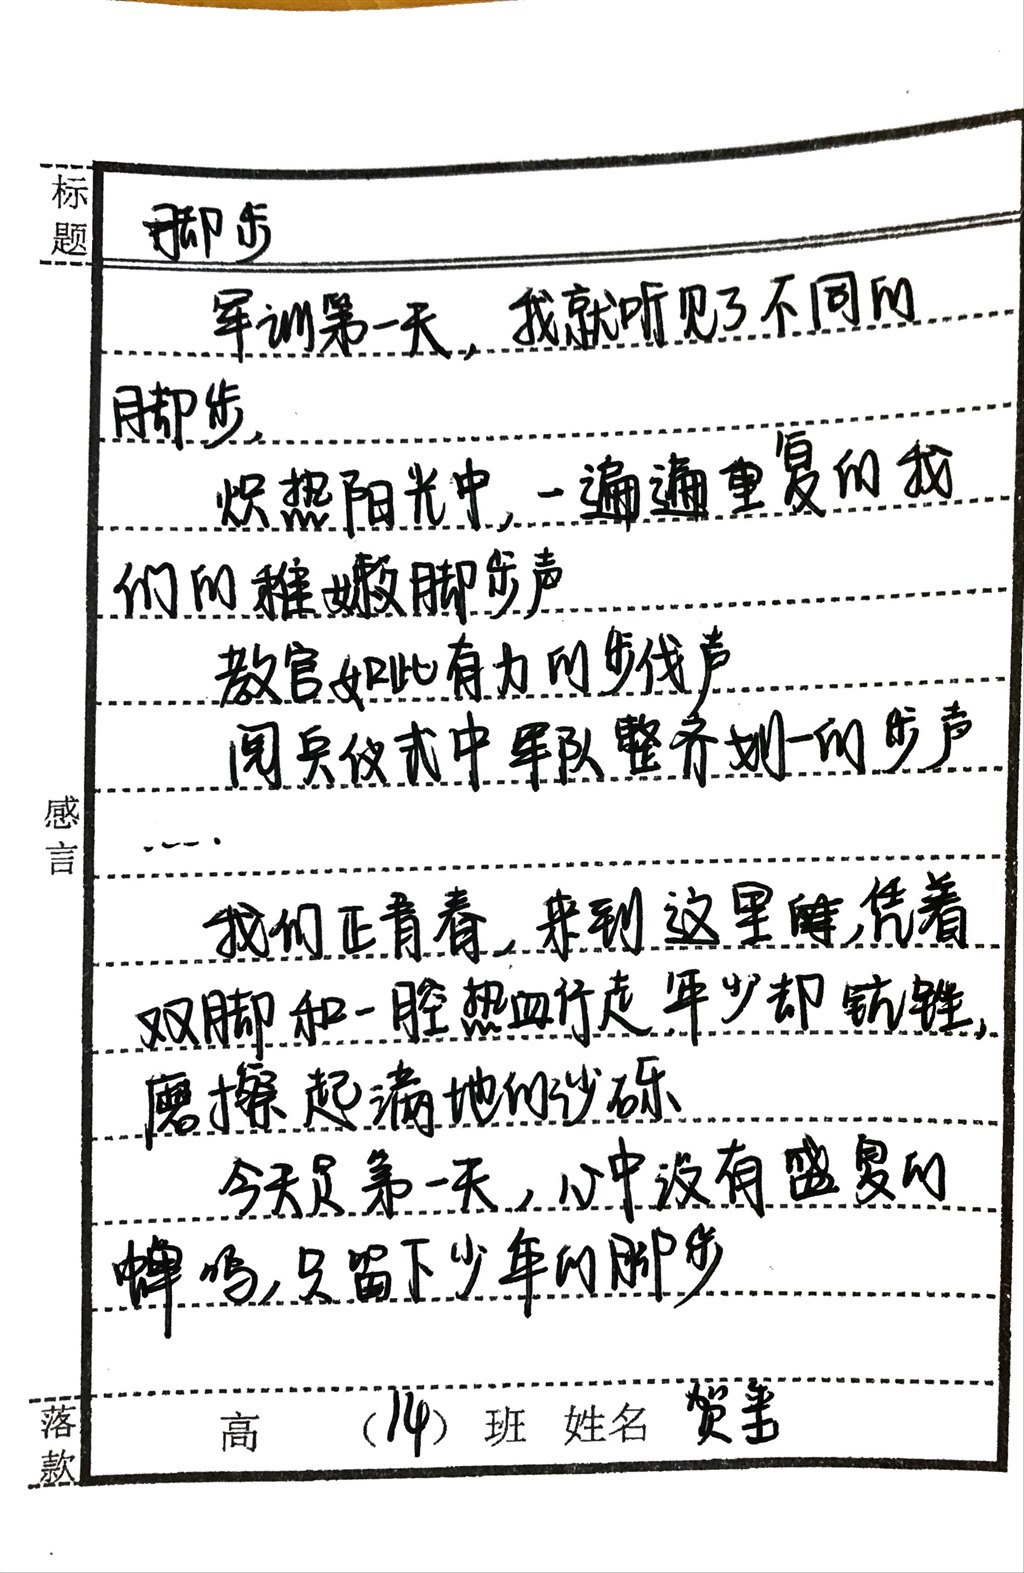 标题 脚步
军训第一天，我就听见了不同的
脚步.
炽热阳光中，一遍遍重复的我
们的稚嫩脚步声
教官如此有力的步伐声
阅兵仪式中军队整齐划一的步声
……
感言
我们正青春，来到这里时，凭着
双脚和一腔热血行走 年少却铿锵，
磨擦起满地的沙砾
今天只第一天，心中没有盛夏的
蝉鸣，只留下少年的脚步
落款 高 （14）班 姓名 贺